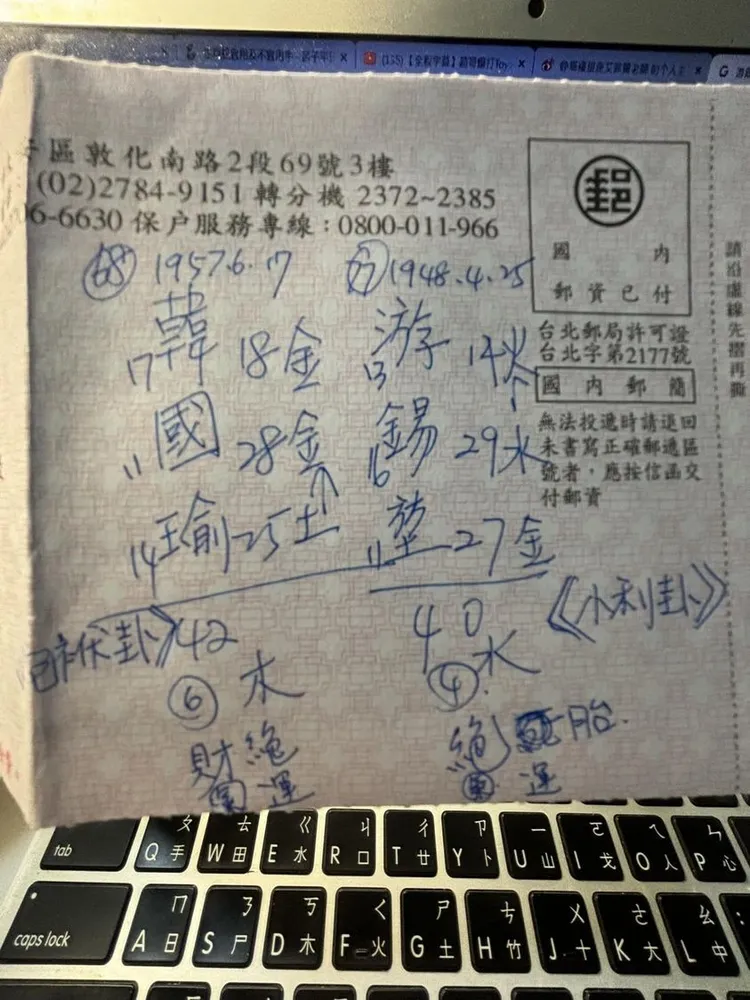 (135)【全程字幕】
區敦化南路2段69號3樓
(02)2784-9151 轉分機 2372~2385
06-6630 保戶服務專線：0800-011-966
郵
國 內
郵資已付
台北郵局許可證
台北字第2177號
國內郵簡
無法投遞時請退回
未書寫正確郵遞區
號者，應按信函交
付郵資
請沿虛線先摺再撕
68 1957.6.17
77 1948.4.25
17 韓 18金
11 國 28金
14 瑜 25土
42
6 木
財 絕
運
13 游 14火
16 錫 29水
11 堃 27金
40
4 水
《小利卦》
絕 胎
運
tab
Q ㄆ 手
W ㄊ 田
E ㄍ 水
R ㄐ 口
T ㄔ 廿
Y ㄗ 卜
U ㄧ 山
I ㄛ 戈
O ㄟ 人
P ㄣ 心
caps lock
A ㄇ 日
S ㄋ 尸
D ㄎ 木
F ㄑ 火
G ㄕ 土
H ㄘ 竹
J ㄨ 十
K ㄜ 大
L ㄠ 中